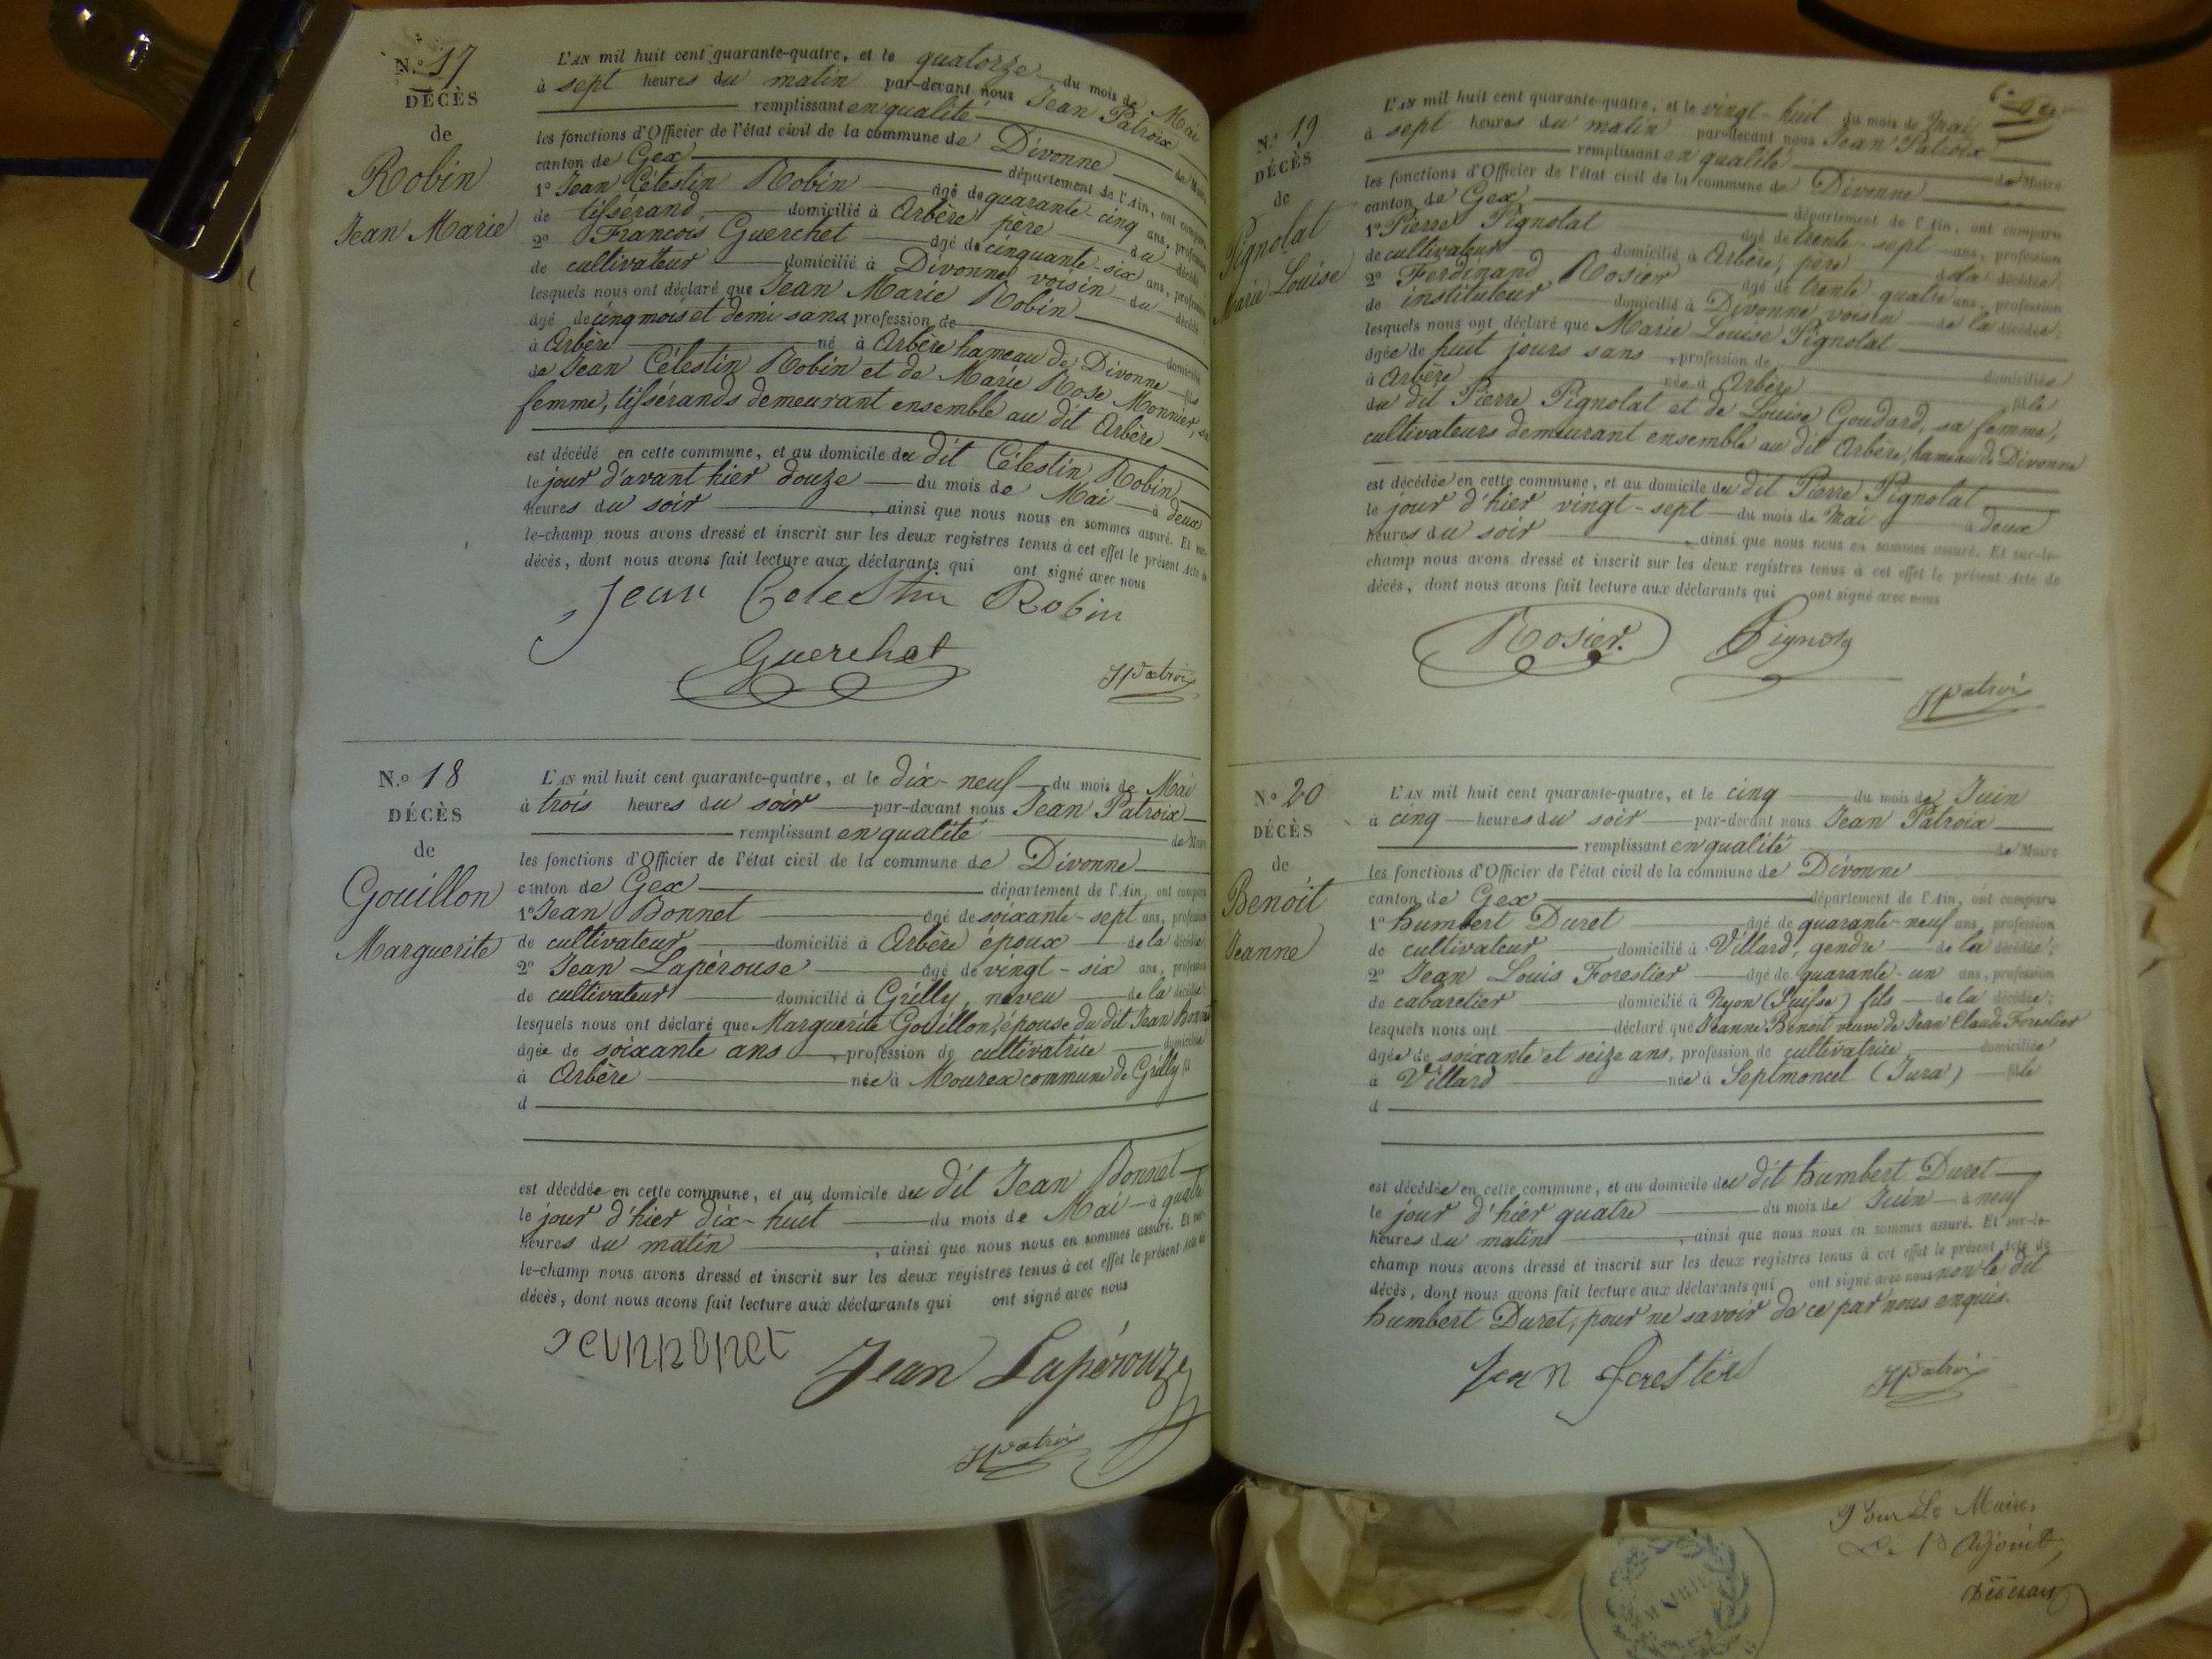 N.º 17
DÉCÈS
de
Robin
Jean Marie
L'AN mil huit cent quarante-quatre, et le quatorze du mois de Mai
à sept heures du matin par-devant nous Jean Patroix
remplissant en qualité de Maire
les fonctions d'Officier de l'état civil de la commune de Divonne
canton de Gex département de l'Ain, ont comparu
1º Jean Célestin Robin âgé de quarante-cinq ans, profession
de tisserand, domicilié à Arbère père du décédé
2º François Guerchet âgé de cinquante-six ans, profession
de cultivateur domicilié à Divonne voisin du décédé
lesquels nous ont déclaré que Jean Marie Robin
âgé de cinq mois et demi sans profession de domicilié
à Arbère né à Arbère hameau de Divonne fils
de Jean Célestin Robin et de Marie Rose Monnier, sa
femme, tisserands demeurant ensemble au dit Arbère
est décédé en cette commune, et au domicile du dit Célestin Robin
le jour d'avant hier douze du mois de Mai à deux
heures du soir, ainsi que nous nous en sommes assuré. Et sur-
le-champ nous avons dressé et inscrit sur les deux registres tenus à cet effet le présent Acte de
décès, dont nous avons fait lecture aux déclarants qui ont signé avec nous
Jean Celestin Robin
Guerchet
JPatroix
N.º 18
DÉCÈS
de
Gouillon
Marguerite
L'AN mil huit cent quarante-quatre, et le dix-neuf du mois de Mai
à trois heures du soir par-devant nous Jean Patroix
remplissant en qualité de Maire
les fonctions d'Officier de l'état civil de la commune de Divonne
canton de Gex département de l'Ain, ont comparu
1º Jean Bonnet âgé de soixante-sept ans, profession
de cultivateur, domicilié à Arbère époux de la décédée
2º Jean Lapérouse âgé de vingt-six ans, profession
de cultivateur domicilié à Grilly, neveu de la décédée
lesquels nous ont déclaré que Marguerite Gouillon, épouse du dit Jean Bonnet
âgée de soixante ans, profession de cultivatrice domiciliée
à Arbère née à Mourex commune de Grilly
d
est décédée en cette commune, et au domicile du dit Jean Bonnet
le jour d'hier dix-huit du mois de Mai à quatre
heures du matin, ainsi que nous nous en sommes assuré. Et sur-
le-champ nous avons dressé et inscrit sur les deux registres tenus à cet effet le présent Acte de
décès, dont nous avons fait lecture aux déclarants qui ont signé avec nous
Jean Lapérouze
JPatroix
N.º 19
DÉCÈS
de
Pignolat
Marie Louise
L'AN mil huit cent quarante-quatre, et le vingt-huit du mois de Mai
à sept heures du matin par-devant nous Jean Patroix
remplissant en qualité de Maire
les fonctions d'Officier de l'état civil de la commune de Divonne
canton de Gex département de l'Ain, ont comparu
1º Pierre Pignolat âgé de trente-sept ans, profession
de cultivateur domicilié à Arbère, père de la décédée;
2º Ferdinand Rosier âgé de trente quatre ans, profession
de instituteur domicilié à Divonne voisin de la décédée;
lesquels nous ont déclaré que Marie Louise Pignolat
âgée de huit jours sans, profession de domiciliée
à Arbère née à Arbère fille
du dit Pierre Pignolat et de Louise Goudard, sa femme,
cultivateurs demeurant ensemble au dit Arbère, hameau de Divonne
est décédée en cette commune, et au domicile du dit Pierre Pignolat
le jour d'hier vingt-sept du mois de Mai à deux
heures du soir, ainsi que nous nous en sommes assuré. Et sur-le-
champ nous avons dressé et inscrit sur les deux registres tenus à cet effet le présent Acte de
décès, dont nous avons fait lecture aux déclarants qui ont signé avec nous
Rosier. Pignolat
JPatroix
N.º 20
DÉCÈS
de
Benoit
Jeanne
L'AN mil huit cent quarante-quatre, et le cinq du mois de Juin
à cinq heures du soir par-devant nous Jean Patroix
remplissant en qualité de Maire
les fonctions d'Officier de l'état civil de la commune de Divonne
canton de Gex département de l'Ain, ont comparu
1º humbert Duret âgé de quarante-neuf ans, profession
de cultivateur domicilié à Villard, gendre de la décédée;
2º Jean Louis Forestier âgé de quarante-un ans, profession
de cabaretier domicilié à Nyon (Suisse) fils de la décédée;
lesquels nous ont déclaré que Jeanne Benoit veuve de Jean Claude Forestier
âgée de soixante et seize ans, profession de cultivatrice domiciliée
à Villard née à Septmoncel (Jura) fille
d
est décédée en cette commune, et au domicile du dit humbert Duret
le jour d'hier quatre du mois de Juin à neuf
heures du matin, ainsi que nous nous en sommes assuré. Et sur-le-
champ nous avons dressé et inscrit sur les deux registres tenus à cet effet le présent Acte de
décès, dont nous avons fait lecture aux déclarants qui ont signé avec nous non le dit
humbert Duret, pour ne savoir de ce par nous enquis.
Jean forestier
JPatroix
Pour Le Maire,
L'Adjoint,
MAIRIE